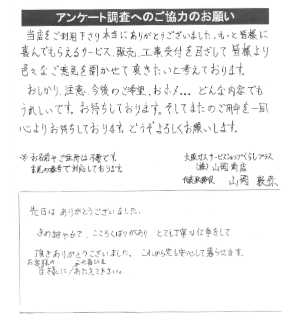 アンケート調査へのご協力のお願い
当店をご利用下さり本当にありがとうございました。もっと皆様に
喜んでもらえるサービス、販売、工事受付を目ざして皆様より
色々なご意見を聞かせて頂きたいと考えております。
おしかり、注意、今後のご希望、おホメ… どんな内容でも
うれしいです。お待ちしております。そしてまたのご用命を一同
心よりお待ちしております。どうぞよろしくお願いします。
※お名前やご住所は不要です。
大阪ガスサービスショップくらしプラス
(株)山岡商店
代表取締役 山岡
先日はありがとうございました。
きめ細やかで、こころくばりがあり とてもていねいな仕事をして
頂きありがとうございました。これからも安心して暮らせます。
お客様の
皆様に